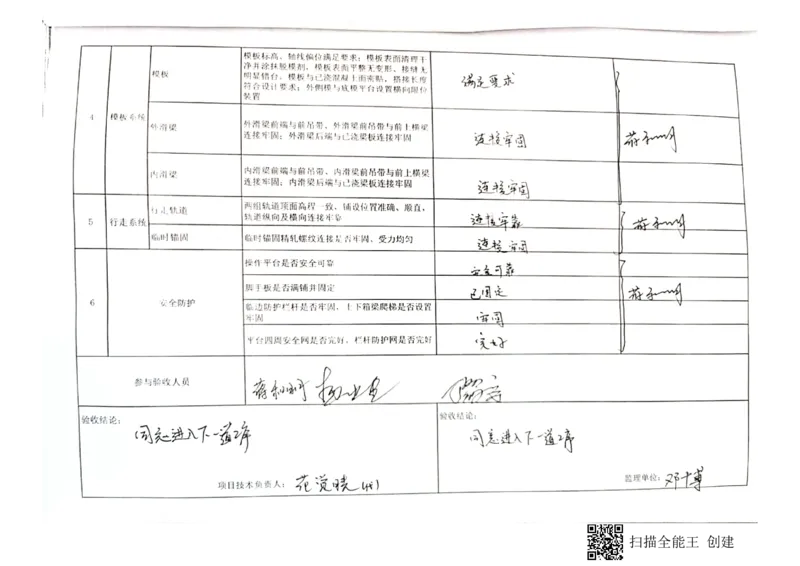 4
模板系统
模板
模板标高、轴线偏位满足要求；模板表面清理干
净并涂抹脱模剂，模板表面平整无变形，接缝无
明显错台，模板与已浇混凝土面密贴，搭接长度
符合设计要求；外侧模与底模平台设置横向限位
装置
满足要求
外滑梁
外滑梁前端与前吊带、外滑梁前吊带与前上横梁
连接牢固；外滑梁后端与已浇梁板连接牢固
连接牢固
内滑梁
内滑梁前端与前吊带、内滑梁前吊带与前上横梁
连接牢固；内滑梁后端与已浇梁板连接牢固
连接牢固
5
行走系统
行走轨道
两组轨道顶面高程一致、铺设位置准确、顺直，
轨道纵向及横向连接牢靠
连接牢靠
临时锚固
临时锚固精轧螺纹连接是否牢固、受力均匀
连接牢固
6
安全防护
操作平台是否安全可靠
安全可靠
脚手板是否满铺并固定
已固定
临边防护栏杆是否牢固，上下箱梁爬梯是否设置
牢固
牢固
平台四周安全网是否完好，栏杆防护网是否完好
完好
参与验收人员
验收结论：
同意进入下一道工序
项目技术负责人：
验收结论：
同意进入下一道工序
监理单位：
扫描全能王 创建